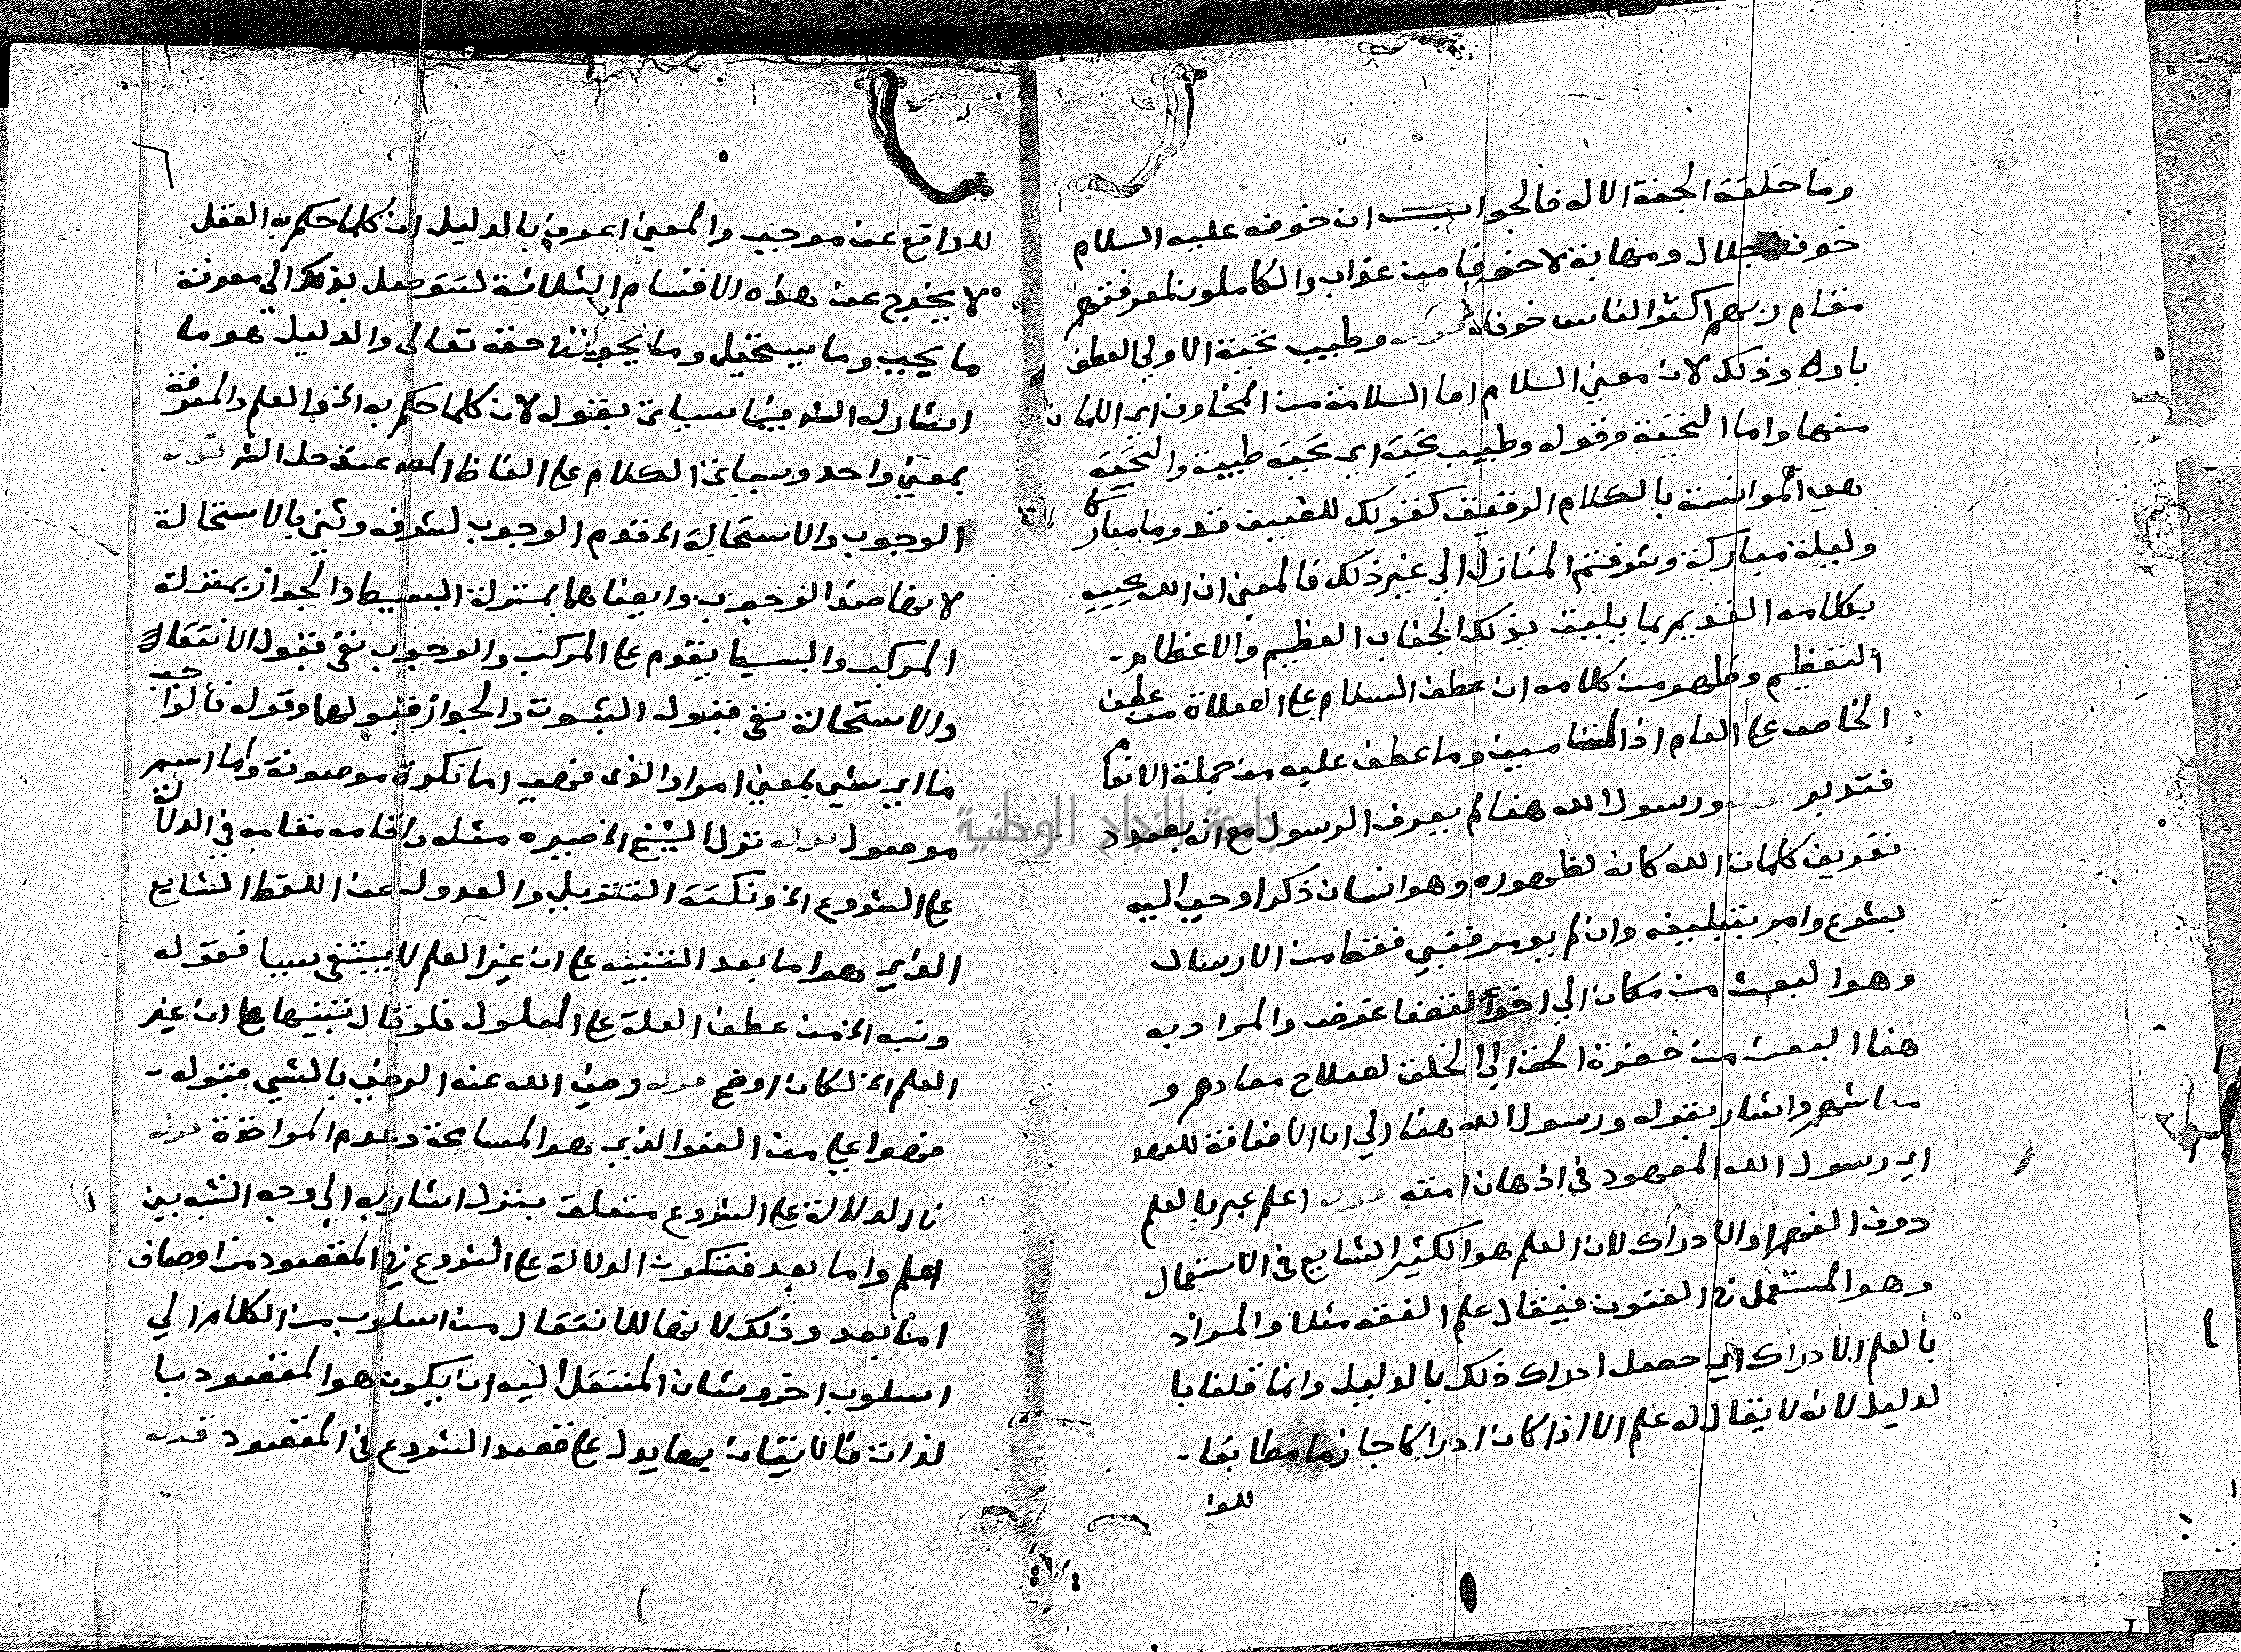 وما خلقت الجنة الا له فالجواب ان خوفه عليه السلام
خوف اجلال ومهابة لا خوفا من عذاب والكاملون لمعرفتهم
مقام ربهم اكثر الناس خوفا قوله وطيب تحية الاولى العطف
باو له وذلك لان معنى السلام اما السلامة من المخاوف اي الامان
منها واما التحية وقوله وطيب تحية اي تحية طيبة والتحية
هي المؤانسة بالكلام الرقيق كقولك للضيف قدوما مباركا
وليلة مباركة وشرفتم المنازل الى غير ذلك فالمعنى ان الله يحييه
بكلامه القديم بما يليق بذلك الجناب العظيم والاعظام
التعظيم وظهر من كلامه ان عطف السلام على الصلاة من عطف
الخاص على العام اذ التامين وما عطف عليه من جملة الانعا
فتدبر قوله ورسول الله هنا لم يعرف الرسول مع انه بصدد
تعريف كلمات الله كان لظهوره وهو انسان ذكر اوحي اليه
بشرع وامر بتبليغه وان لم يومر فنبي فقط من الارسال
وهو البعث من مكان الى اخر لغة عرض والمراد به
هنا البعث من حضرة الحق الى الخلق لصلاح معادهم و
معاشهم واشار بقوله ورسول الله هنا الى ان الاضافة للعهد
اي رسول الله المعهود في اذهان امته قوله اعلم عبر بالعلم
دون الفهم او الادراك لان العلم هو الكثير الشايع في الاستعمال
وهو المستعمل في الفنون فيقال علم الفقه مثلا والمراد
بالعلم الادراك اي حصل ادراك ذلك بالدليل وانما قلنا با
لدليل لانه لا يقال له علم الا اذا كان ادراكا جازما مطابقا
للوا
للواقع عن موجب والمعنى اعرف بالدليل ان كلما حكم به العقل
لا يخرج عن هذه الاقسام الثلاثة لتتوصل بذلك الى معرفة
ما يجب وما يستحيل وما يجوز في حقه تعالى والدليل هو ما
اشار له الش فيما سياتي بقوله لان كلما حكم به الخ والعلم والمعرفة
بمعنى واحد وسياتي الكلام على الفاظ المص عند حل الش قوله
الوجوب والاستحالة الخ قدم الوجوب لشرفه وثنى بالاستحالة
لانها ضد الوجوب وايضا هما بمنزلة البسيط والجواز بمنزلة
المركب والبسيط يقدم على المركب والوجوب نفي قبول الانتفاء
والاستحالة نفي قبول الثبوت والجواز قبولهما وقوله فالواجب
ما اي شي بمعنى امر او الذى فهي اما نكرة موصوفة واما اسم
موصول قوله نزل الشيخ الخ صيره مثله واقامه مقامه في الدلالة
على الشروع الخ ونكتة التنزيل والعدول عن اللفظ الشايع
الذي هو اما بعد التنبيه على ان غير العلم لا ينبغى سببا فقوله
ونبه الخ من عطف العلة على المعلول فلو قال تنبيها على ان غير
العلم الخ لكان اوضح قوله رضي الله عنه الرضي بالشي قبوله
فهو اعلى من العفو الذي هو المسامحة وعدم المواخذة قوله
في الدلالة على الشروع متعلق بنزل اشار به الى وجه الشبه بين
اعلم واما بعد فتكون الدلالة على الشروع في المقصود من اوصاف
اما بعد وذلك لانها للانتقال من اسلوب من الكلام الي
اسلوب اخر وشان المنتقل اليه ان يكون هو المقصود با
لذات فالاتيان بها يدل على قصد الشروع في المقصود قوله
جامعة النجاح الوطنية